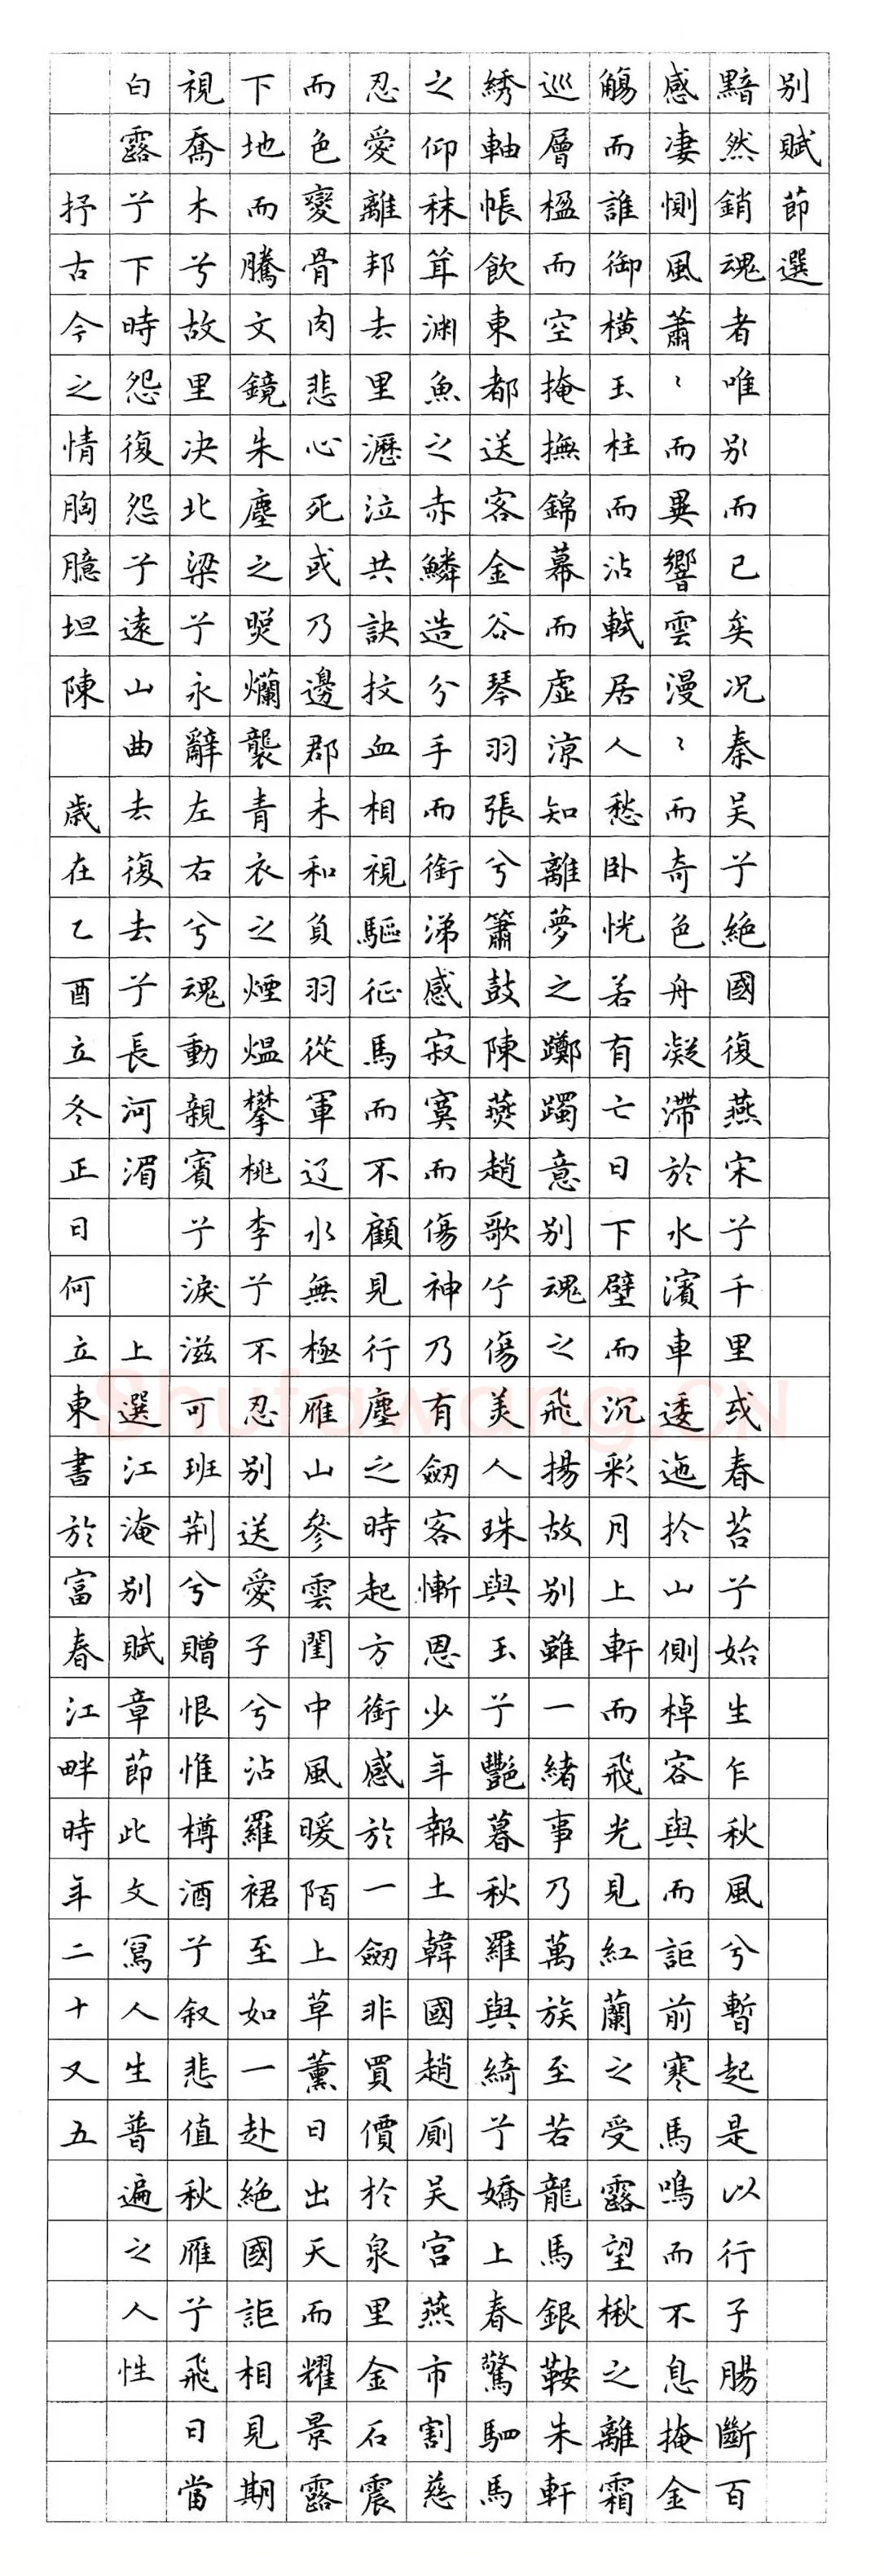 别賦節選
黯然銷魂者唯别而已矣况秦吴兮絶國復燕宋兮千里或春苔兮始生乍秋風兮暫起是以行子腸斷百
感凄惻風蕭〻而異響雲漫〻而奇色舟凝滯於水濱車逶迤扵山側棹容與而詎前寒馬鳴而不息掩金
觴而誰御橫玉柱而沾軾居人愁卧恍若有亡日下壁而沉彩月上軒而飛光見紅蘭之受露望楸之離霜
巡層楹而空掩撫錦幕而虛涼知離夢之躑躅意别魂之飛揚故别雖一緒事乃萬族至若龍馬銀鞍朱軒
綉軸帳飲東都送客金谷琴羽張兮簫鼓陳燕趙歌兮傷美人珠與玉兮豔暮秋羅與綺兮嬌上春驚駟馬
之仰秣聳淵魚之赤鱗造分手而銜涕感寂寞而傷神乃有劒客慚恩少年報土韓國趙厠吴宫燕市割慈
忍愛離邦去里瀝泣共訣抆血相視驅征馬而不顧見行塵之時起方銜感於一劒非買價扵泉里金石震
而色變骨肉悲心死或乃邊郡未和負羽從軍辽水無極雁山參雲閨中風暖陌上草薰日出天而耀景露
下地而騰文鏡朱塵之照爛襲青衣之煙熅攀桃李兮不忍别送愛子兮沾羅裙至如一赴絶國詎相見期
視喬木兮故里决北梁兮永辭左右兮魂動親賓兮淚滋可班荆兮贈恨惟樽酒兮叙悲值秋雁兮飛日當
白露兮下時怨復怨兮遠山曲去復去兮長河湄 上選江淹别賦章節此文寫人生普遍之人性
抒古今之情胸臆坦陳 歲在乙酉立冬正日何立東書於富春江畔時年二十又五
Shufawang.CN